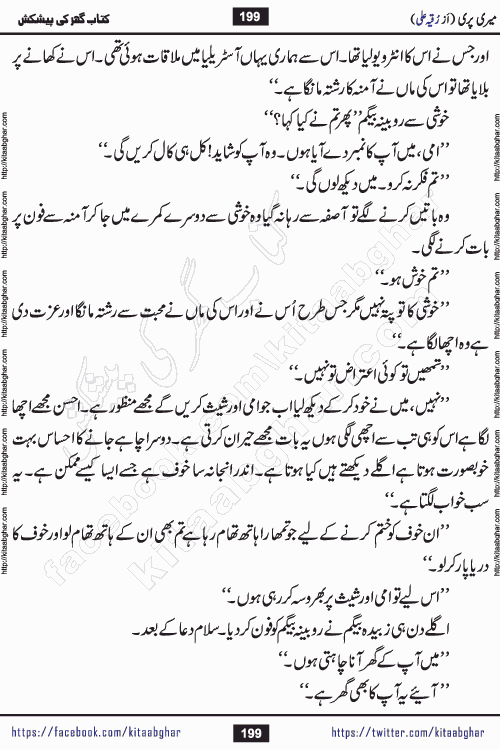 میری پری (از رُقیہ علی)
199
کتاب گھر کی پیشکش
اور جس نے اس کا انٹرویو لیا تھا۔ اس سے ہماری یہاں آسٹریلیا میں ملاقات ہوئی تھی۔ اس نے کھانے پر
بلایا تھا تو اس کی ماں نے آمنہ کا رشتہ مانگا ہے۔‘‘
خوشی سے روبینہ بیگم ’’پھر تم نے کیا کہا؟‘‘
’’امی، میں آپ کا نمبر دے آیا ہوں۔ وہ آپ کو شاید! کل ہی کال کریں گی۔‘‘
’’تم فکر نہ کرو۔ میں دیکھ لوں گی۔‘‘
وہ باتیں کرنے لگے تو آصفہ سے رہا نہ گیا وہ خوشی سے دوسرے کمرے میں جا کر آمنہ سے فون پر
بات کرنے لگی۔
’’تم خوش ہو۔‘‘
’’خوشی کا تو پتہ نہیں مگر جس طرح اُس نے اور اس کی ماں نے محبت سے رشتہ مانگا اور عزت دی
ہے وہ اچھا لگا ہے۔‘‘
’’تمھیں تو کوئی اعتراض تو نہیں۔‘‘
’’نہیں، میں نے خود کر کے دیکھ لیا اب جو امی اور شیث کریں گے مجھے منظور ہے۔ احسن مجھے اچھا
لگا ہے اس کو ہی تب سے اچھی لگی ہوں یہ بات مجھے حیران کرتی ہے۔ دوسرا چاہے جانے کا احساس بہت
خوبصورت ہوتا ہے اگلے دیکھتے ہیں کیا ہوتا ہے۔ اندر انجانہ سا خوف ہے جسے ایسا کیسے ممکن ہے۔ یہ
سب خواب لگتا ہے۔‘‘
’’ان خوف کو ختم کرنے کے لیے جو تمھارا ہاتھ تھام رہا ہے تم بھی ان کے ہاتھ تھام لو اور خوف کا
دریا پار کر لو۔‘‘
’’اس لیے تو امی اور شیث پر بھروسہ کر رہی ہوں۔‘‘
اگلے دن ہی زبیدہ بیگم نے روبینہ بیگم کو فون کر دیا۔ سلام دعا کے بعد۔
’’میں آپ کے گھر آنا چاہتی ہوں۔‘‘
’’آیئے یہ آپ کا بھی گھر ہے۔‘‘
http://kitaabghar.com
http://kitaabghar.com
http://kitaabghar.com
http://kitaabghar.com
http://kitaabghar.com
http://kitaabghar.com
http://kitaabghar.com
http://kitaabghar.com
http://kitaabghar.com
http://kitaabghar.com
http://kitaabghar.com
http://kitaabghar.com
کتاب گھر کی پیشکش
facebook.com/kitaabghar
kitaabghar.com
https://facebook.com/kitaabghar
199
https://twitter.com/kitaabghar